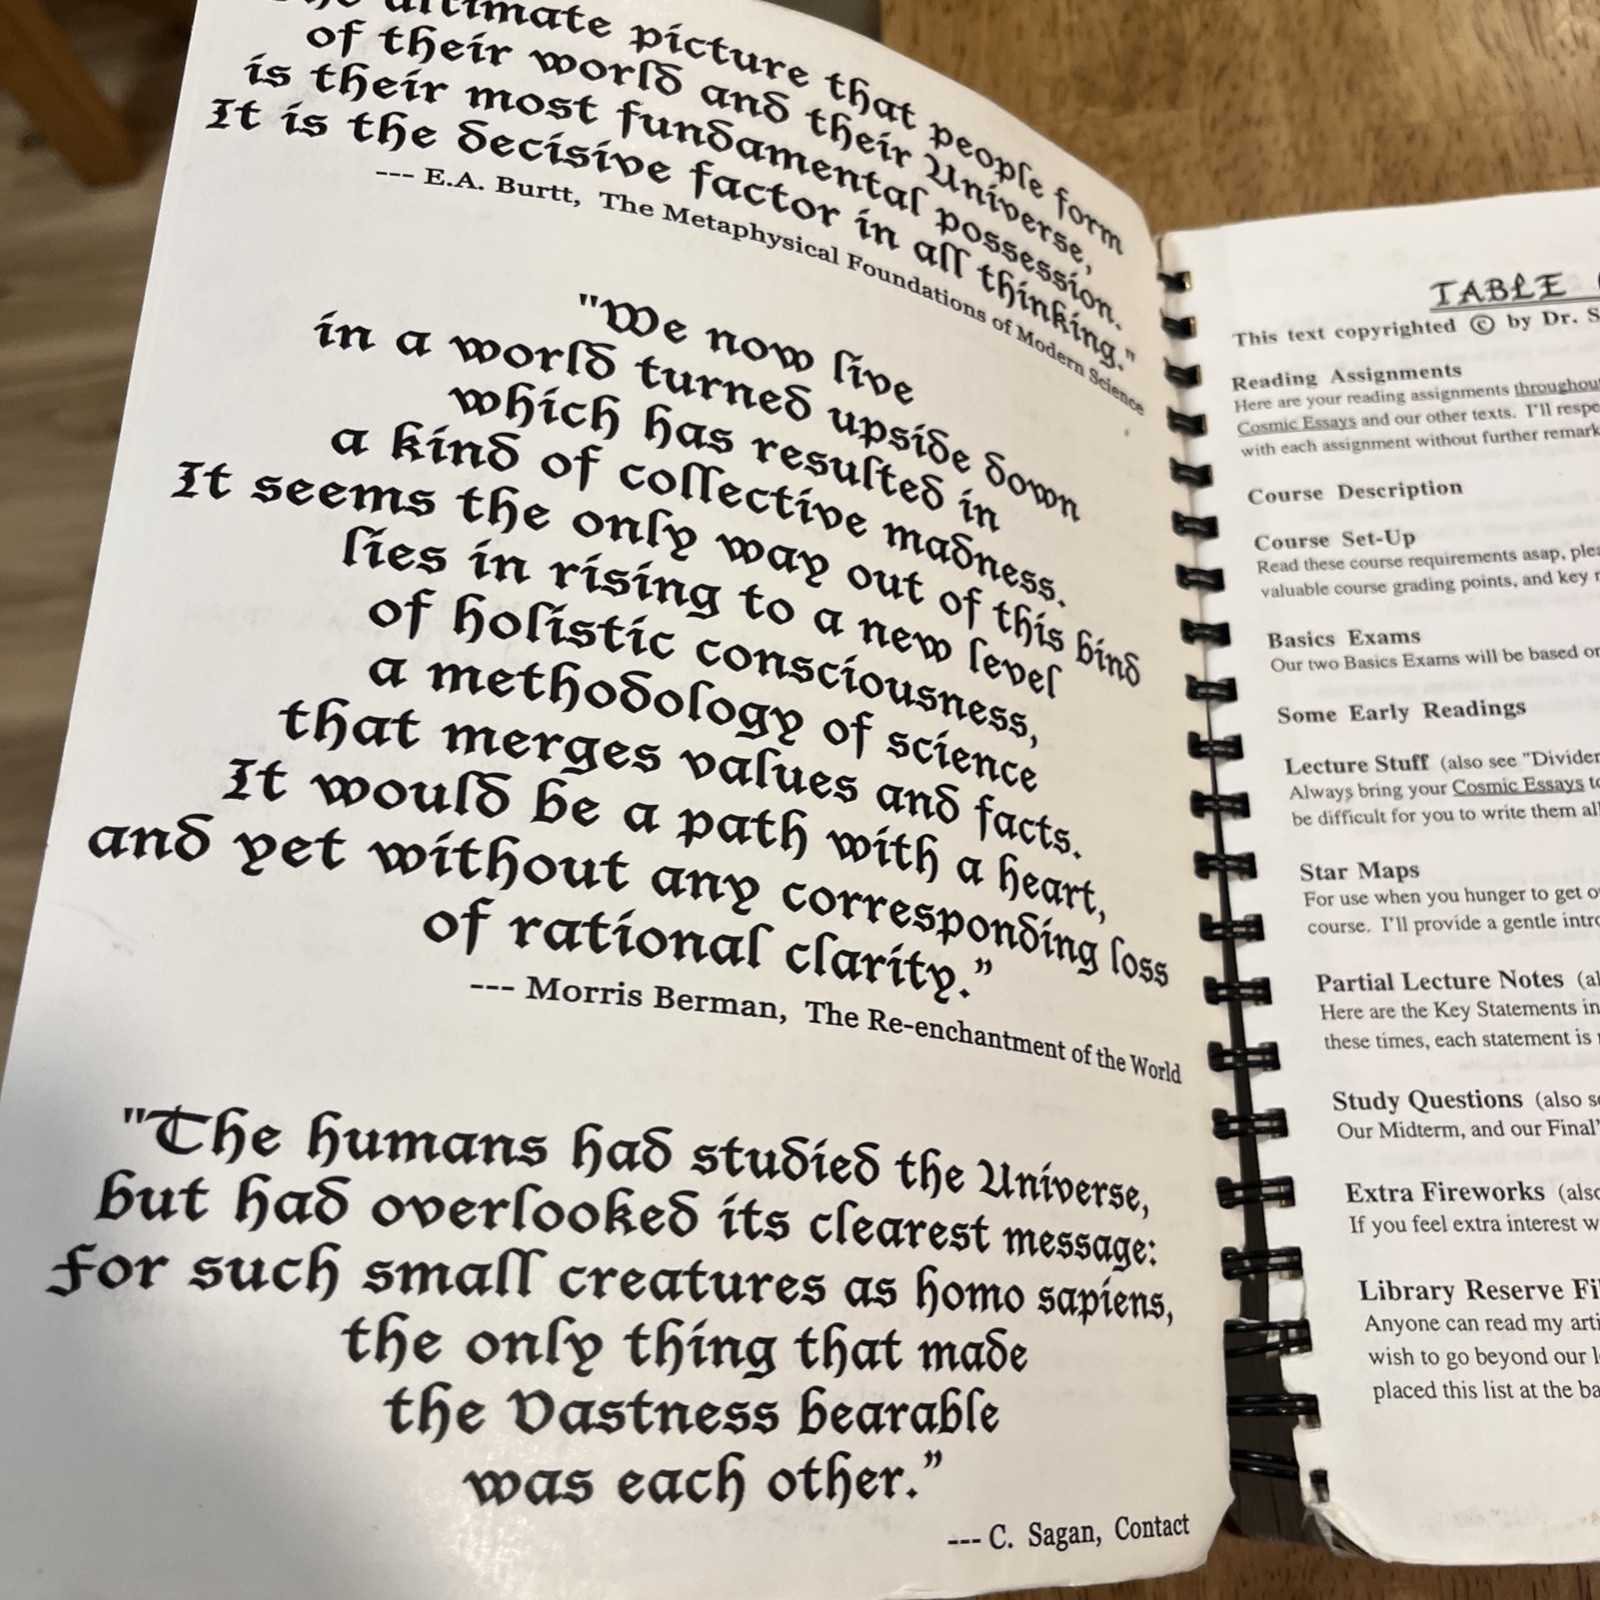 The ultimate picture that people form
of their world and their Universe,
is their most fundamental possession.
It is the decisive factor in all thinking."
--- E.A. Burtt, The Metaphysical Foundations of Modern Science
"We now live
in a world turned upside down
which has resulted in
a kind of collective madness.
It seems the only way out of this bind
lies in rising to a new level
of holistic consciousness,
a methodology of science
that merges values and facts.
It would be a path with a heart,
and yet without any corresponding loss
of rational clarity.”
--- Morris Berman, The Re-enchantment of the World
"The humans had studied the Universe,
but had overlooked its clearest message:
For such small creatures as homo sapiens,
the only thing that made
the Vastness bearable
was each other.”
--- C. Sagan, Contact
TABLE
This text copyrighted © by Dr. S
Reading Assignments
Here are your reading assignments throughout
Cosmic Essays and our other texts. I'll respe
with each assignment without further remark
Course Description
Course Set-Up
Read these course requirements asap, plea
valuable course grading points, and key
Basics Exams
Our two Basics Exams will be based on
Some Early Readings
Lecture Stuff (also see "Divider
Always bring your Cosmic Essays to
be difficult for you to write them all
Star Maps
For use when you hunger to get o
course. I'll provide a gentle intro
Partial Lecture Notes (al
Here are the Key Statements in
these times, each statement is
Study Questions (also se
Our Midterm, and our Final'
Extra Fireworks (also
If you feel extra interest w
Library Reserve Fi
Anyone can read my arti
wish to go beyond our l
placed this list at the ba